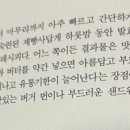 마무리까지 아주 빠르고 간단하
숙련된 제빵사답게 하룻밤 동안 발효
레시피다. 어느 쪽이든 결과물은 맛
버터를 약간 넣으면 아름답고 부드
나고 유통기한이 늘어난다는 장점
있는 버거 번이나 부드러운 샌드위